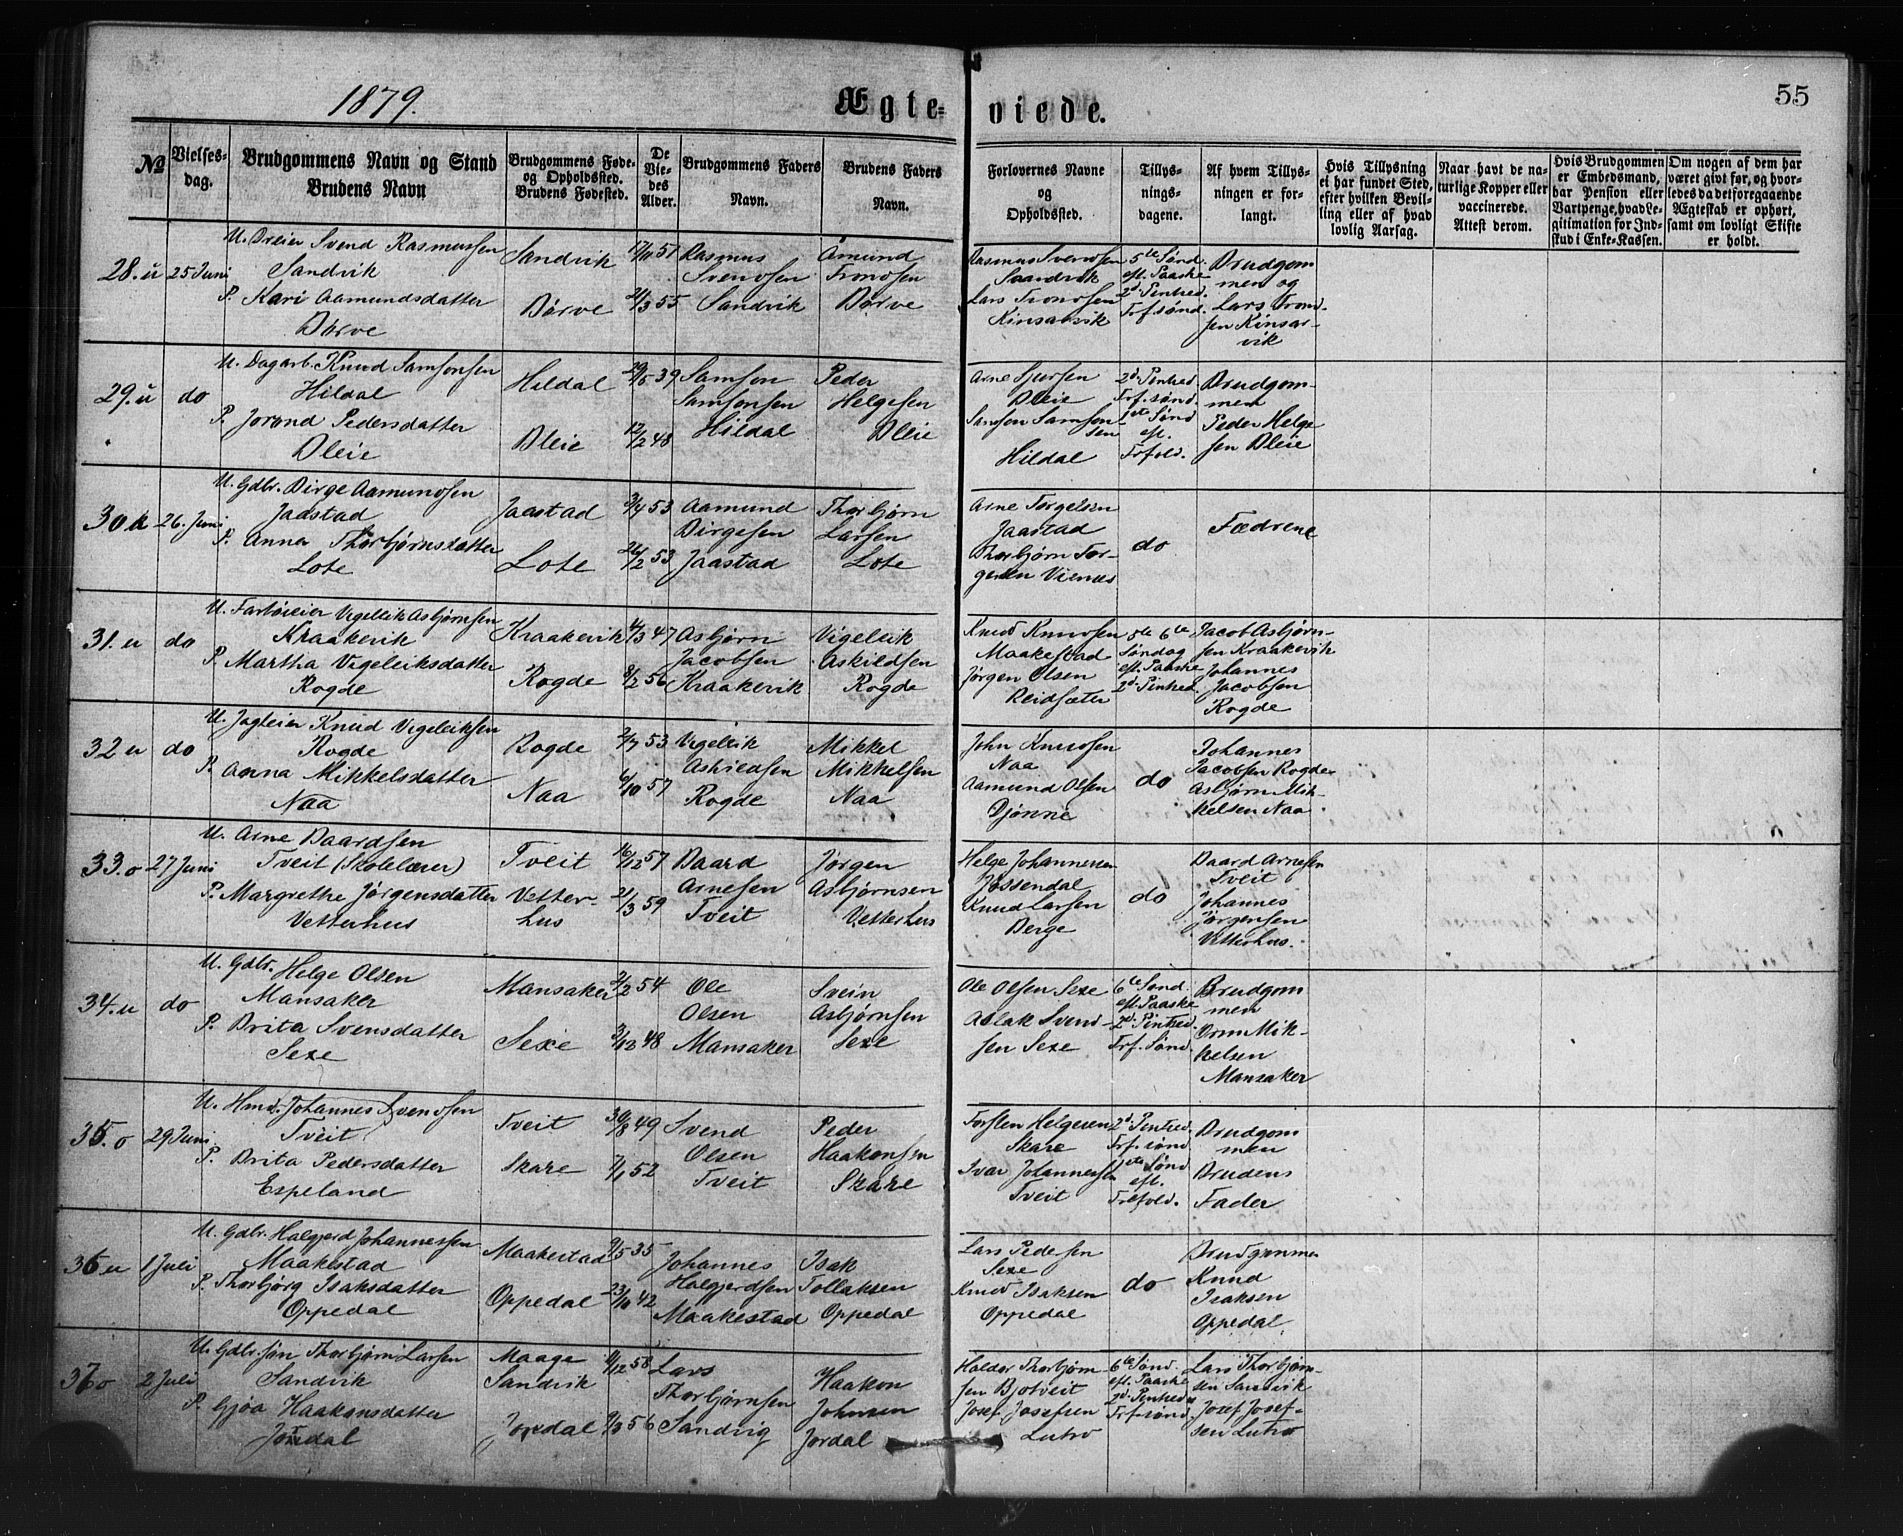 1879.
Ægteviede.
55
No
Vielses-
dag.
Brudgommens Navn og Stand
Brudens Navn
Brudgommens Føde-
og Opholdssted.
Brudens Fødested.
De
Vie-
des
Alder.
Brudgommens Faders
Navn.
Brudens Faders
Navn.
Forlovernes Navne
og
Opholdssted.
Tillys-
nings-
dagene.
Af hvem Tillys-
ningen er for-
langt.
Hvis Tillysning
ei har fundet Sted,
efter hvilken Bevil-
ling eller af hvad
lovlig Aarsag.
Naar havt de na-
turlige Kopper eller
vaccinerede.
Attest derom.
Hvis Brudgommen
er Embedsmand,
har Pension eller
Vartpenge, hvad Le-
gitimation for Ind-
skud i Enke-Kassen.
Om nogen af dem har
været givt før, og hvor-
ledes da det foregaaende
Ægteskab er ophørt,
samt om lovligt Skifte
er holdt.
28. u 25 Juni
U. Dreier Svend Rasmussen
Sandvik
P. Kari Aamundsdatter
Børve
Sandvik
Børve
17/11 51
21/3 55
Rasmus
Svendsen
Sandvik
Amund
Trondsen
Børve
Rasmus Svendsen
Sandvik
Lars Trondsen
Kinsarvik
5te Sønd.
eft. Paaske
2d. Pintsed.
Trf. sønd.
Brudgom
men og
Lars Trond
sen Kinsar-
vik
29. u do
U. Dagarb. Knud Samsonsen
Hildal
P. Jorond Pedersdatter
Bleie
Hildal
Bleie
29/5 39
12/2 48
Samson
Samsonsen
Hildal
Peder
Helgesen
Bleie
Arne Sjursen
Bleie
Samson Samson
sen
Hildal
2d. Pintsed.
Trf. sønd.
1ste Sønd
eft.
Trfold.
Brudgom-
men
Peder Helge
sen Bleie
30 u 26. Juni
U. Gdbr. Birge Aamundsen
Jaastad
P. Anna Thorbjørnsdatter
Lote
Jaastad
Lote
3/4 53
26/2 53
Aamund
Birgesen
Jaastad
Thorbjørn
Larsen
Lote
Arne Torgelsen
Jaastad
Thorbjørn Tor-
gersen Vienes
do
Fædrene
31. u do
U. Fartøieier Vigeleik Asbjørnsen
Kraakevik
P. Martha Vigeleiksdatter
Rogde
Kraakevik
Rogde
4/3 47
8/2 56
Asbjørn
Jacobsen
Kraakevik
Vigeleik
Askildsen
Rogde
Knud Knudsen
Maakestad
Jørgen Olsen
Reidsæter
5te 6te
Søndag
eft. Paaske
2d. Pintsed.
Jacob Asbjørn-
sen Kraakevik
Johannes
Jacobsen
Rogde
32 u do
U. Jagteier Knud Vigeleiksen
Rogde
P. Anna Mikkelsdatter
Naa
Rogde
Naa
2/7 53
6/10 57
Vigeleik
Askildsen
Rogde
Mikkel
Mikkelsen
Naa
John Knudsen
Naa
Aamund Olsen
Djønne
do
Johannes
Jacobsen Rogde
Asbjørn Mik-
kelsen Naa
33. o 27 Juni
U. Arne Baardsen
Tveit (Skolelærer)
P. Margrethe Jørgensdatter
Vetterhus
Tveit
Vetter-
hus
16/12 57
21/3 59
Baard
Arnesen
Tveit
Jørgen
Asbjørnsen
Vetterhus
Helge Johannesen
Jøssendal
Knud Larsen
Berge
do
Baard Arnesen
Tveit
Johannes
Jørgensen
Vetterhus.
34. u do
U. Gdbr. Helge Olsen
Mansaker
P. Brita Svensdatter
Sexe
Mansaker
Sexe
2/2 54
3/12 48
Ole
Olsen
Mansaker
Svein
Asbjørnsen
Sexe
Ole Olsen Sexe
Aslak Svend-
sen Sexe
6te Sønd.
eft. Paaske
2d. Pintsed.
Trf. Sønd.
Brudgom
men
Orm Mik-
kelsen
Mansaker
35. o 29 Juni
U. Hmd. Johannes Svendsen
Tveit
P. Brita Pedersdatter
Espeland
Tveit
Skare
30/8 49
7/1 52
Svend
Olsen
Tveit
Peder
Haakonsen
Skare
Torsten Helgesen
Skare
Ivar Johannessen
Tveit
2d. Pintsed.
Trf. sønd
1ste Sønd
eft.
Trefold.
Brudgom
men
Brudens
Fader
36 u 1 Juli
U. Gdbr. Halgjerd Johannessen
Maakestad
P. Thorbjørg Isaksdatter
Oppedal
Maakestad
Oppedal
9/5 35
23/10 42
Johannes
Halgjerdsen
Maakestad
Isak
Tollaksen
Oppedal
Lars Pedersen
Sexe
Knud Isaksen
Oppedal
do
Brudgommen
Knud
Isaksen
Oppedal
37 o 2 Juli
U. Gdbr. søn Thorbjørn Larsen
Sandvik
P. Gjøa Haakonsdatter
Jordal
Maage
Sandvik
Jordal
9/12 58
9/3 56
Lars
Thorbjørnsen
Sandvig
Haakon
Johnsen
Jordal
Haldor Thorbjørn-
sen Bjotveit
Josef Josefsen
Lutro
6te Sønd.
eft. Paaske
2d. Pintsed.
Trf. sønd.
Lars Thorbjørn-
sen Sandvik
Josef Josef-
sen Lutro